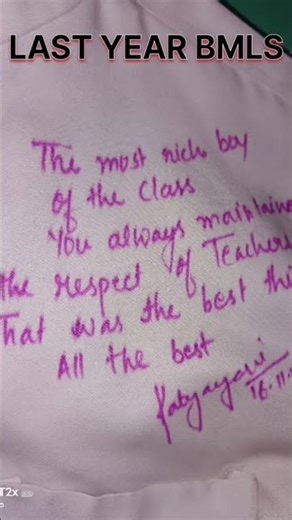 LAST YEAR BMLS
The most rich boy
of the class
You always maintaine
the respect of Teachers
That was the best thi
All the best
16.11.
T2x